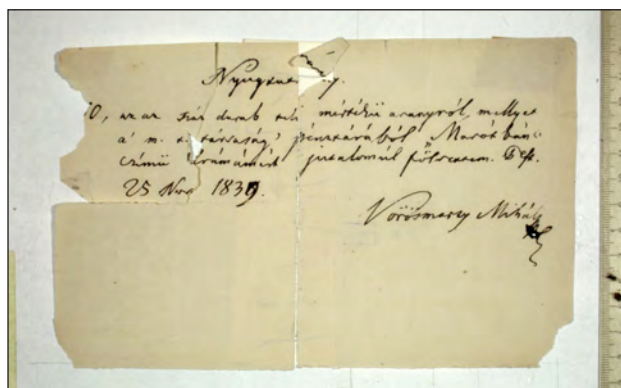 Nyugtatvány.
00, az az száz darab teli mértékü aranyról, mellyet
a' m. t. társaság' pénztárából „Marót bán"
czimü drámámért jutalomúl fölvettem. Pest.
25 Nov 1839.
Vörösmarty Mihály